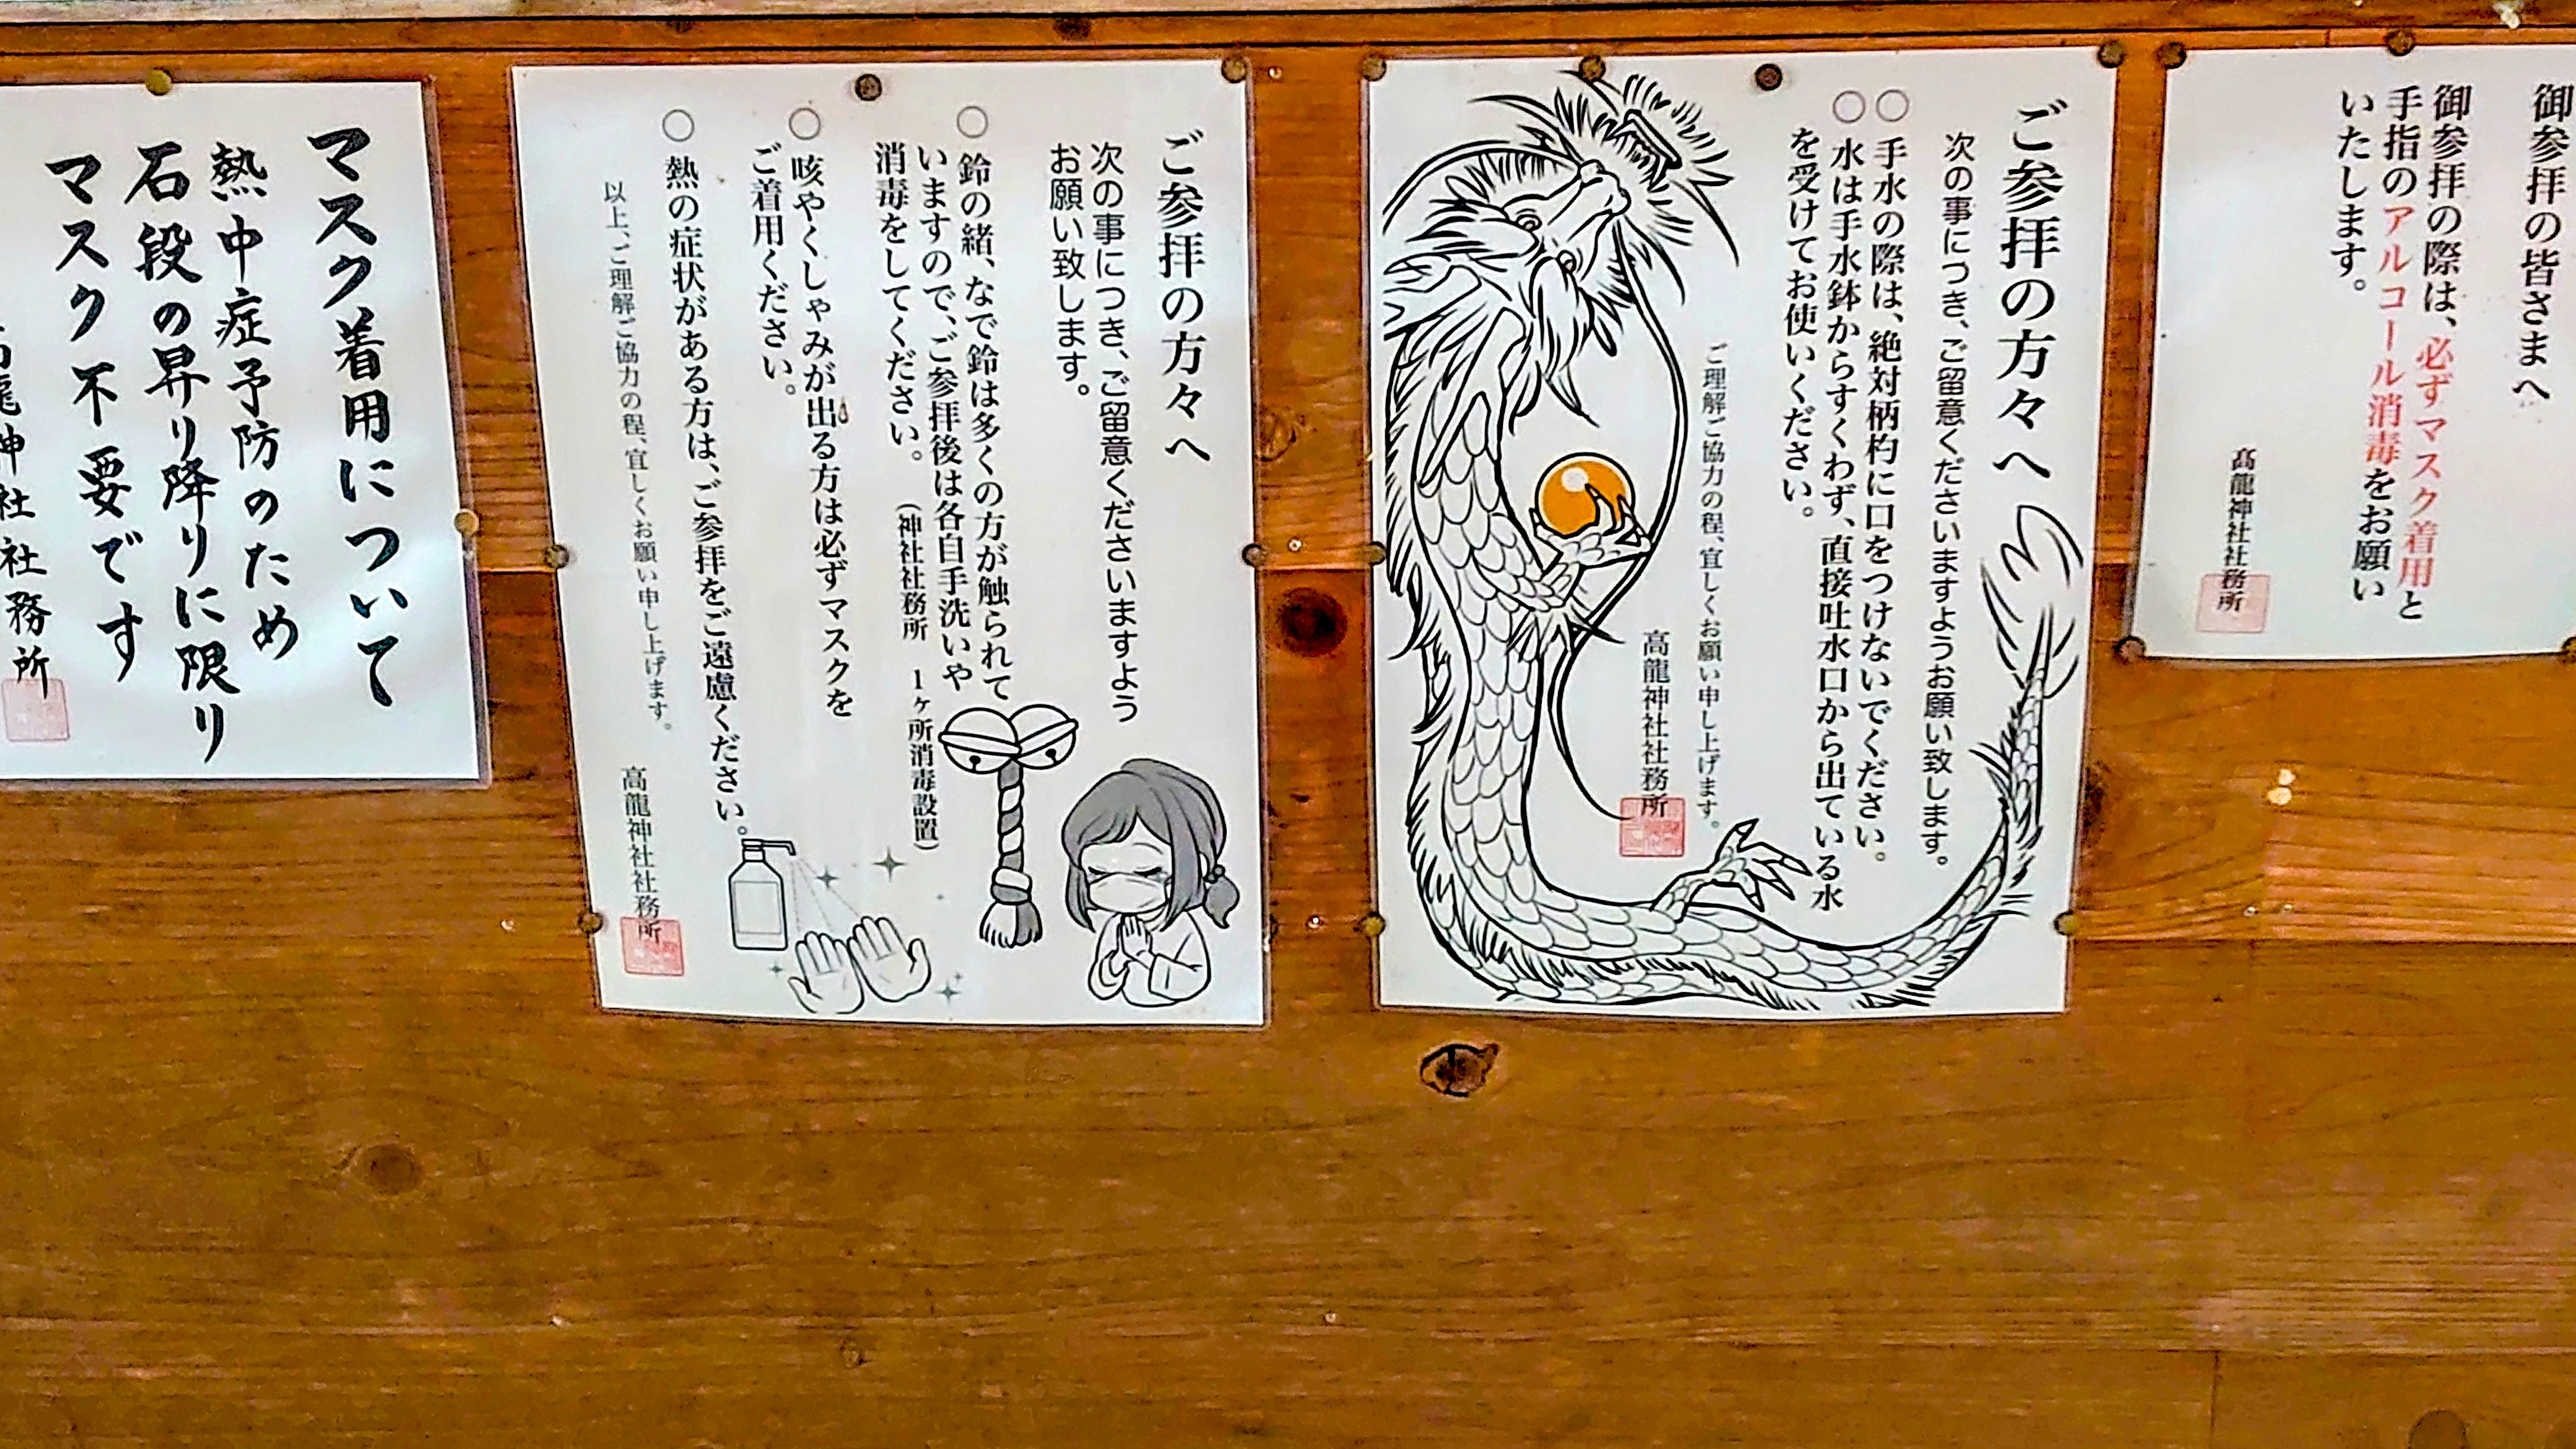 御参拝の皆さまへ
御参拝の際は、必ずマスク着用と
手指のアルコール消毒をお願い
いたします。
髙龍神社社務所
ご参拝の方々へ
次の事につき、ご留意くださいますようお願い致します。
○ 手水の際は、絶対柄杓に口をつけないでください。
○ 水は手水鉢からすくわず、直接吐水口から出ている水
を受けてお使いください。
ご理解ご協力の程、宜しくお願い申し上げます。
高龍神社社務所
ご参拝の方々へ
次の事につき、ご留意くださいますよう
お願い致します。
○ 鈴の緒、なで鈴は多くの方が触られて
いますので、ご参拝後は各自手洗いや
消毒をしてください。(神社社務所 1ヶ所消毒設置)
○ 咳やくしゃみが出る方は必ずマスクを
ご着用ください。
○ 熱の症状がある方は、ご参拝をご遠慮ください。
以上、ご理解ご協力の程、宜しくお願い申し上げます。
高龍神社社務所
マスク着用について
熱中症予防のため
石段の昇り降りに限り
マスク不要です
高龍神社社務所